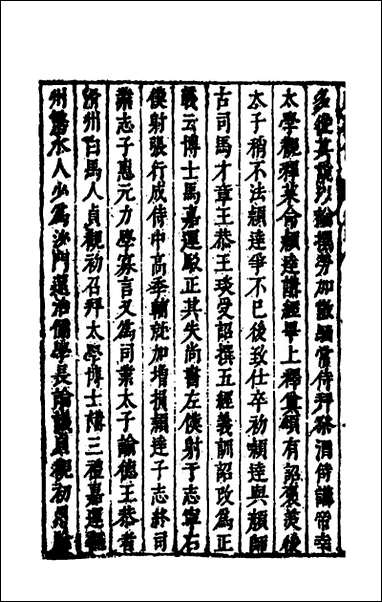 多從其說以論撰勞加散騎常侍拜祭酒侍講帝幸
太學觀釋菜命穎達講經畢上釋奠頌有詔褒美後
太子稍不法穎達爭不已後致仕卒初穎達與顏師
古司馬才章王恭王琰受詔撰五經義訓詔改爲正
義云博士馬嘉運駁正其失尚書左僕射于志寧右
僕射張行成侍中高季輔就加增損穎達子志終司
業志子惠元力學寡言又爲司業太子諭德王恭者
滑州白馬人貞觀初召拜太學博士講三禮嘉運魏
州繁水人少爲沙門還治儒學長論議貞觀初累除